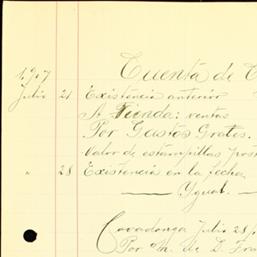 1,907
Cuenta de
Julio 21 Existencia anterior
A Tienda: ventas
Por Gastos Grales.
Valor de estampillas
" 28 Existencia en la fecha
Ygual.
Covadonga Julio 28
Por de